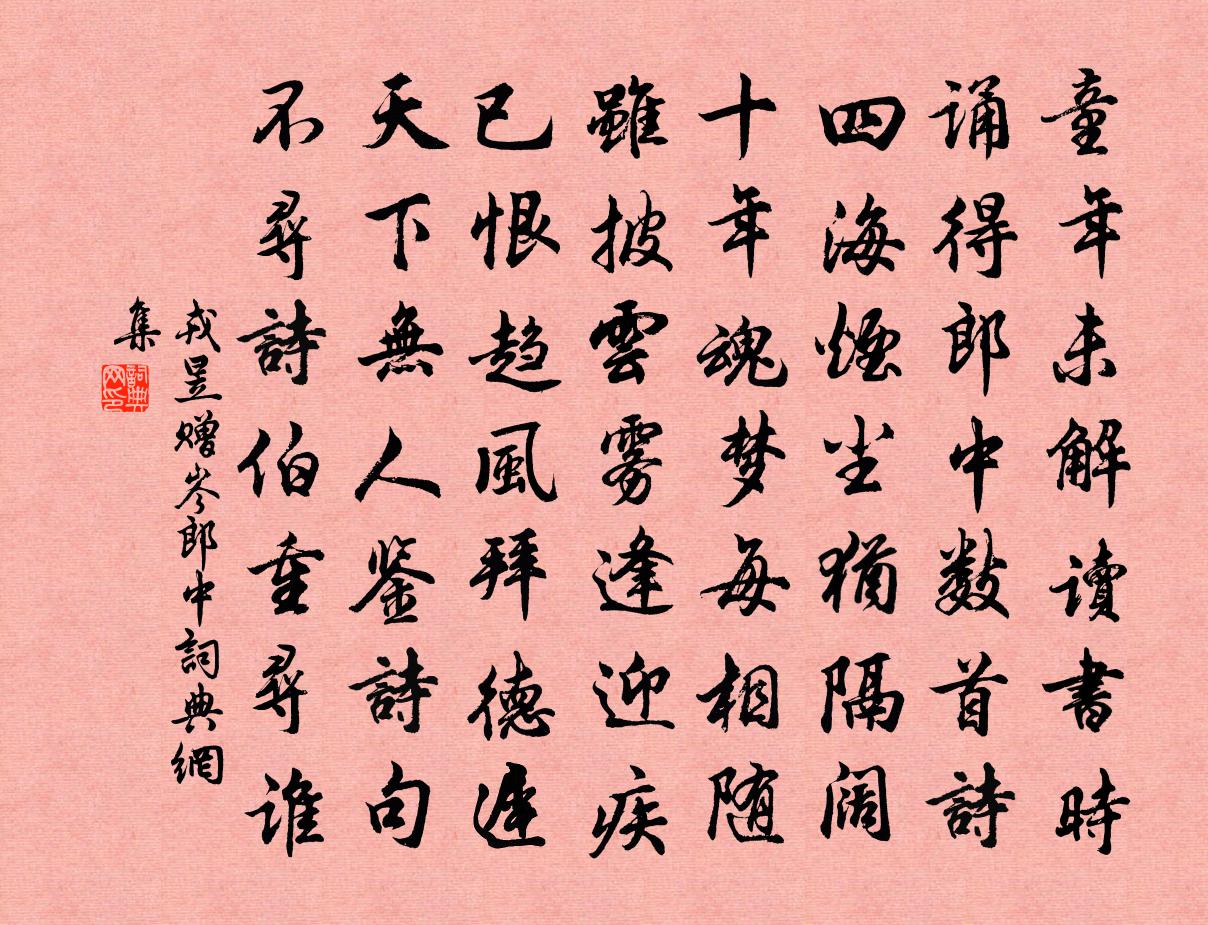 童年未解讀書時
誦得郎中數首詩
四海煙尘猶隔闊
十年魂梦每相随
雖披雲雾逢迎疾
已恨趋風拜德遲
天下無人鉴詩句
不尋詩伯重尋誰
戎昱赠岑郎中詞典網
集
詞典网印